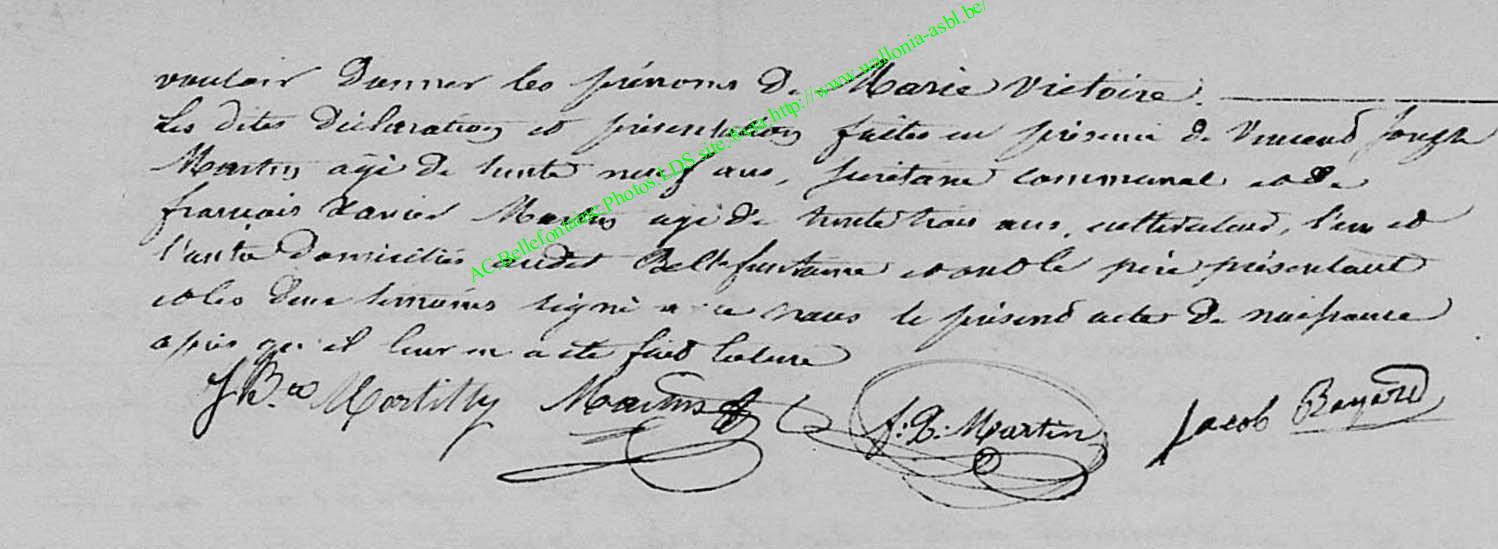 vouloir donner les prénoms de Marie Victoire.
Les dites déclaration et présentation faites en présence de Vincend Joseph
Martin agé de trente neuf ans, secretaire communal et de
françois Xavier Martin agé de trente trois ans, cultivateur, l'un et
l'autre domiciliés audit Bellefontaine et ont le père présentant
et les deux temoins signé avec nous le présend acte de naissance
après qu'il leur en a été fait lecture
J Bte Mortilly Martin f: X: Martin Jacob Bayard
AC.Bellefontaine.Photos.LDS.site.
http://www.wallonia-asbl.be/